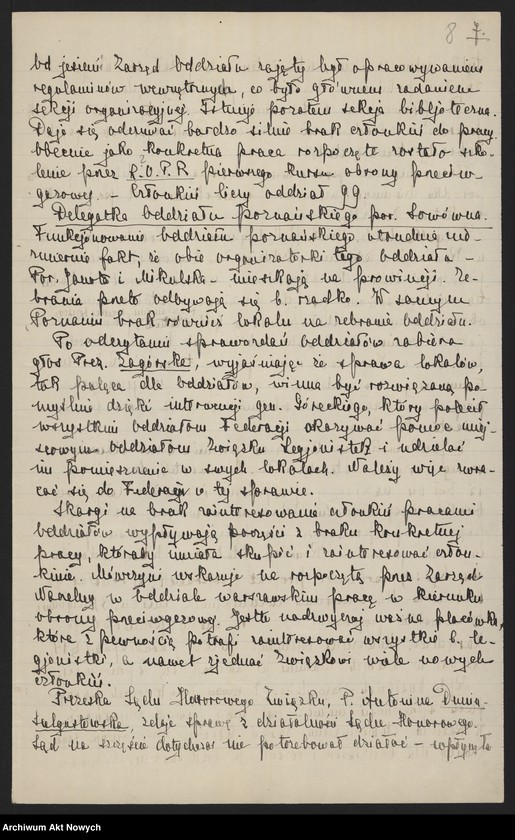 8 7.
Od jesieni Zarząd Oddziału zajęty był opracowywaniem
regulaminów wewnętrznych, co było głównem zadaniem
sekcji organizacyjnej. Istnieje pozatem sekcja bibljoteczna.
Daje się odczuwać bardzo silnie brak członkiń do pracy.
Obecnie jako konkretna praca rozpoczęte zostało szko-
lenie przez P.O.P.R pierwszego kursu obrony przeciw-
gazowej. – Członkiń liczy oddział 99
Delegatka Oddziału poznańskiego por. Sowówna.
Funkcjonowanie Oddziału poznańskiego utrudnia nie-
zmiernie fakt, że obie organizatorki tego oddziału –
Por. Janota i Mikulska – mieszkają na prowincji. Ze-
brania przeto odbywają się b. rzadko. W samym
Poznaniu brak również lokalu na zebrania Oddziału.
Po odczytaniu sprawozdań oddziałów zabiera
głos Prez. Zagórska, wyjaśniając że sprawa lokalów,
tak paląca dla Oddziałów, winna być rozwiązaną po
myślnie dzięki interwencji gen. Góreckiego, który polecił
wszystkim oddziałom Federacji okazywać pomoc miej-
scowym Oddziałom Związku Legjonistek i udzielać
im pomieszczenia w swych lokalach. Należy więc zwra-
cać się do Federacji w tej sprawie.
Skargi na brak zainteresowania członkiń pracami
Oddziałów wypływają przecież z braku konkretnej
pracy, któraby umiała skupić i zainteresować człon-
kinie. Mówczyni wskazuje na rozpoczętą przez Zarząd
Naczelny w Oddziale warszawskim pracę w kierunku
obrony przeciwgazowej. Jest to nadzwyczaj ważna placówka,
która z pewnością potrafi zainteresować wszystkie b. le-
gjonistki, a nawet zjednać Związkowi wiele nowych
członkiń.
Prezeska Sądu Honorowego Związku, P. Antonina Dunin-
Sulgustowska, zdaje sprawę z działalności Sądu Honorowego.
Sąd na szczęście dotychczas nie potrzebował działać – wpłynęła
Archiwum Akt Nowych